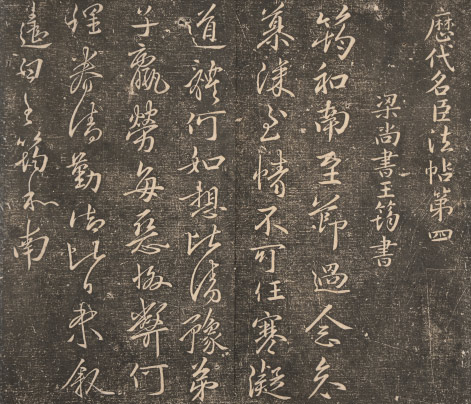 歷代名臣法帖第四
梁尚書王筠書
筠和南至節過念哀
慕深至情不可任寒凝
道體何如想比清豫弟
子羸勞每惡弊何
理勤比未敘
遣白王筠和南